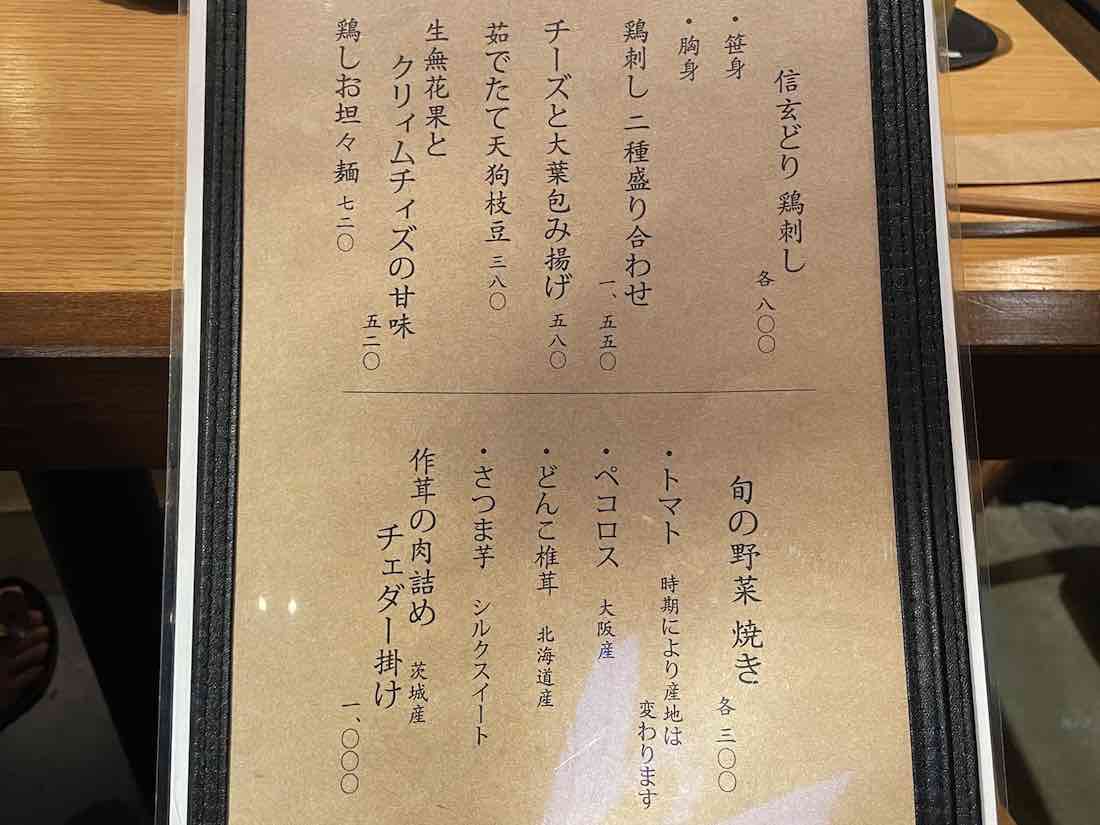 信玄どり 鶏刺し
各 八〇〇
・笹身
・胸身
鶏刺し 二種盛り合わせ
一、五五〇
チーズと大葉包み揚げ 五八〇
茹でたて天狗枝豆 三八〇
生無花果と
クリィムチィズの甘味
五二〇
鶏しお坦々麺 七二〇
旬の野菜 焼き
各 三〇〇
・トマト 時期により産地は
変わります
・ペコロス 大阪産
・どんこ椎茸 北海道産
・さつま芋 シルクスイート
作茸の肉詰め 茨城産
チェダー掛け
一、〇〇〇